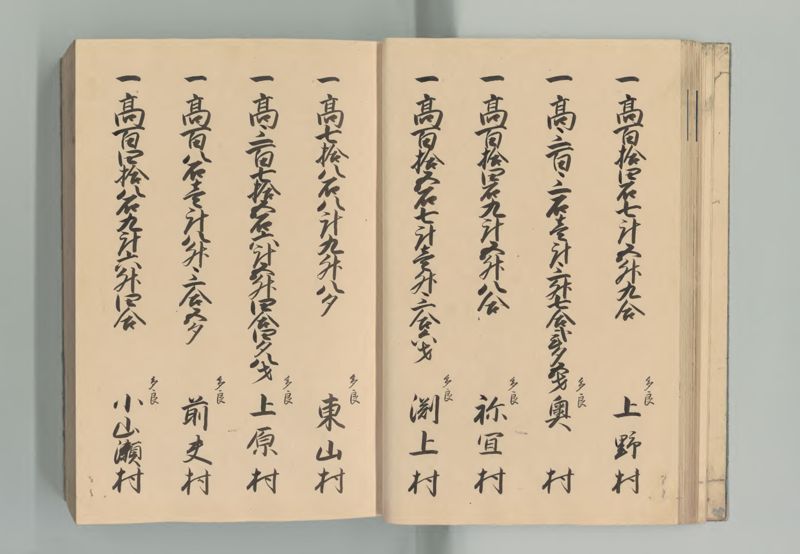 一 高百拾四石七斗五升九合
多良
上野村
一 高三百三石壱斗三升七合弐夕五才
多良
奥村
一 高百拾四石九斗五升八合
多良
祢宜村
一 高百拾五石七斗壱升三合六才
多良
渕上村
一 高七拾八石八斗九升八夕
多良
東山村
一 高三百七拾五石六斗五升四合四夕八才
多良
上原村
一 高百八石壱斗八升三合五夕
多良
前史村
一 高百四拾八石九斗六升四合
多良
小山瀬村